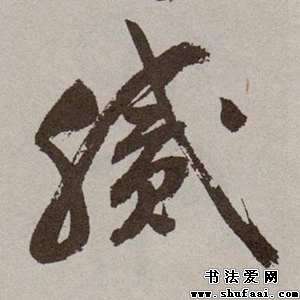 膩
书法爱网
www.shufaai.com